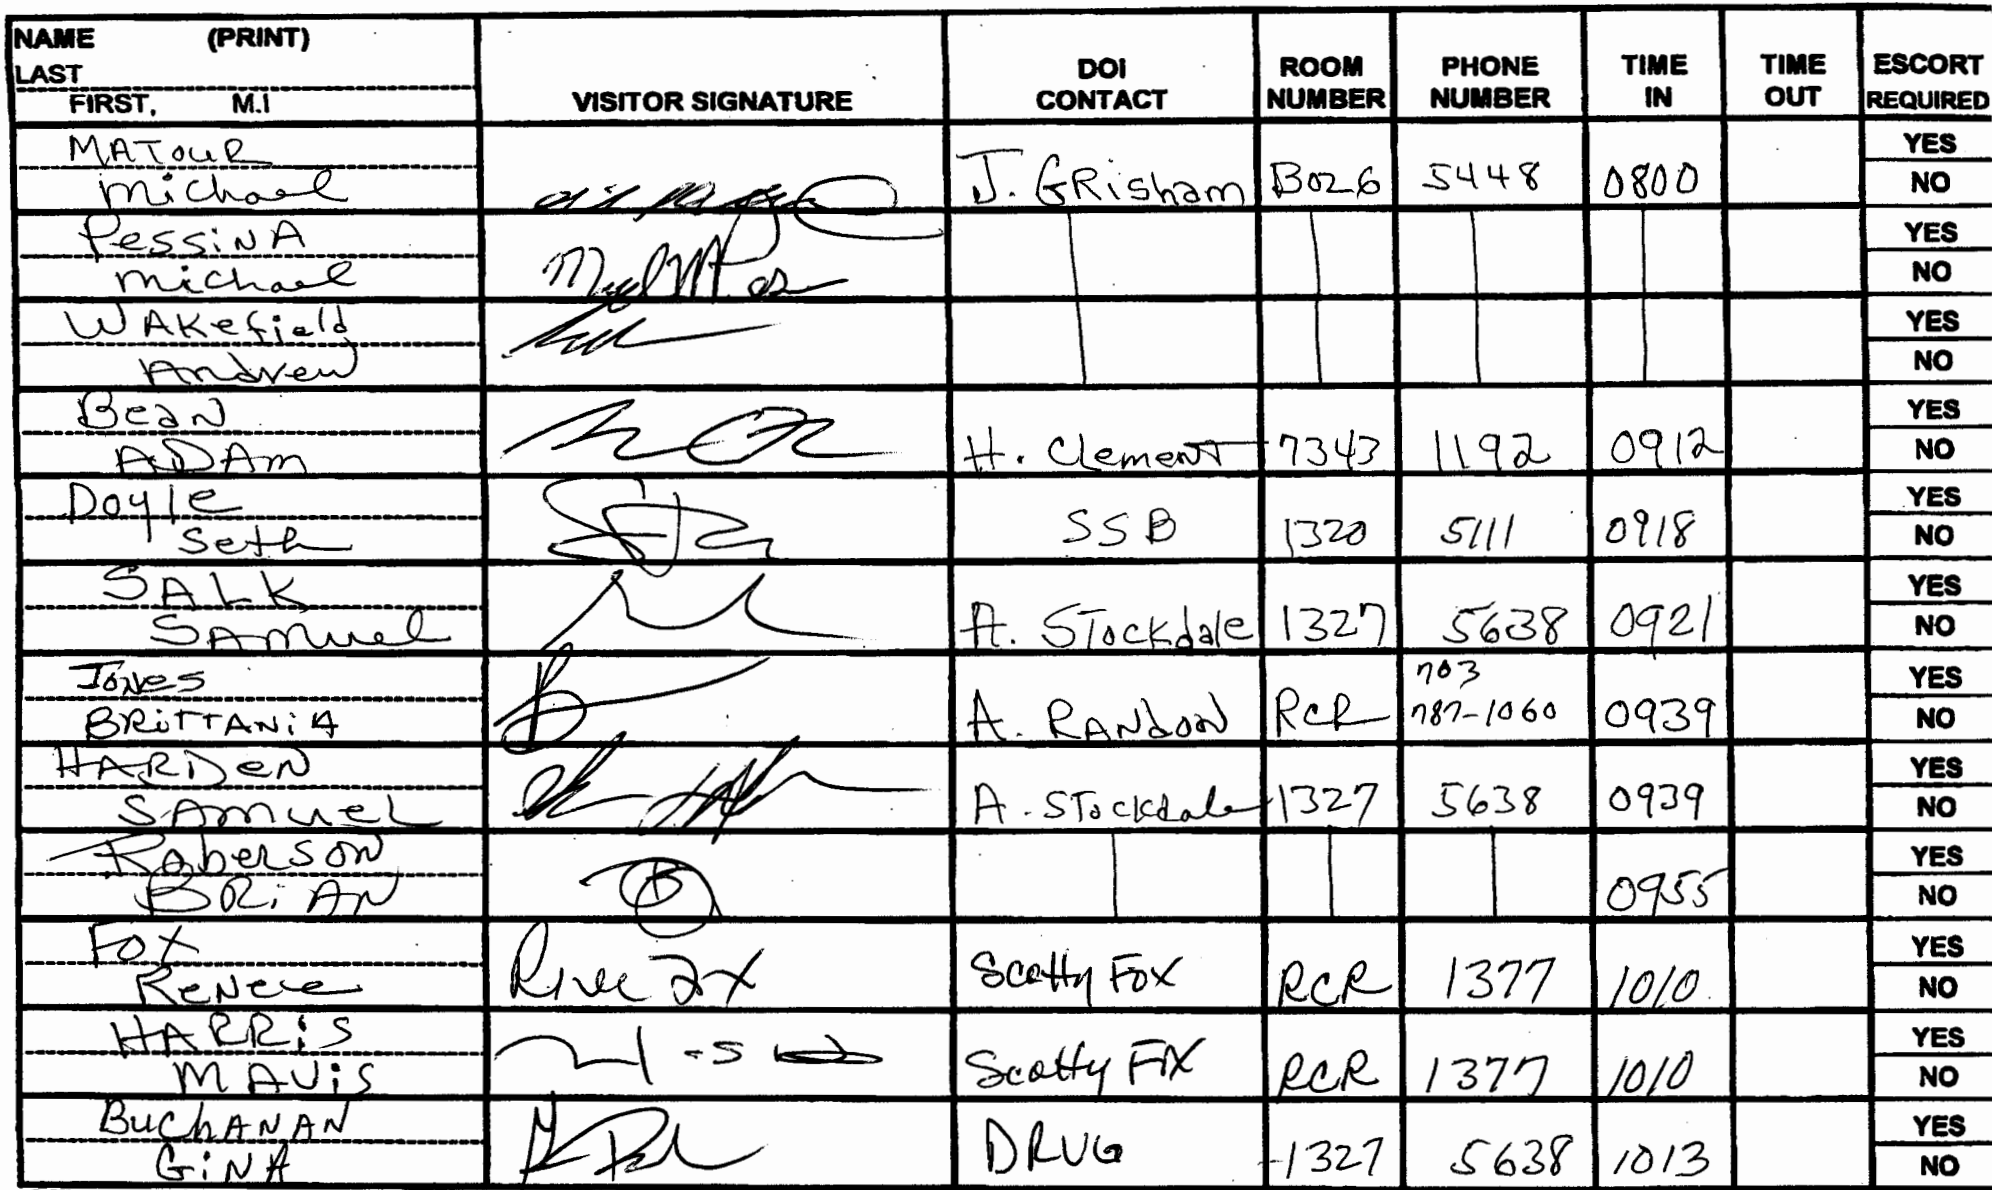 NAME (PRINT)
LAST
FIRST, M.I
VISITOR SIGNATURE
DOI CONTACT
ROOM NUMBER
PHONE NUMBER
TIME IN
TIME OUT
ESCORT REQUIRED
MATOUR
Michael
J. GRisham B026 5448 0800
YES
NO
PessiNA
Michael
YES
NO
WAKefield
Andrew
YES
NO
BeaN
ADAm
H. ClemenT 7343 1192 0912
YES
NO
Doyle
Seth
SSB 1320 5111 0918
YES
NO
SALK
SAMuel
A. STockdale 1327 5638 0921
YES
NO
JoNes
BRiTTANiA
A. RANdoN RCR 703 787-1060 0939
YES
NO
HARDeN
SAmuel
A. STockdale 1327 5638 0939
YES
NO
RobersoN
BRiAN
0955
YES
NO
Fox
ReNee
Scotty Fox RCR 1377 1010
YES
NO
HARRiS
MAViS
Scotty Fox RCR 1377 1010
YES
NO
BuchANAN
GiNA
DRUG 1327 5638 1013
YES
NO